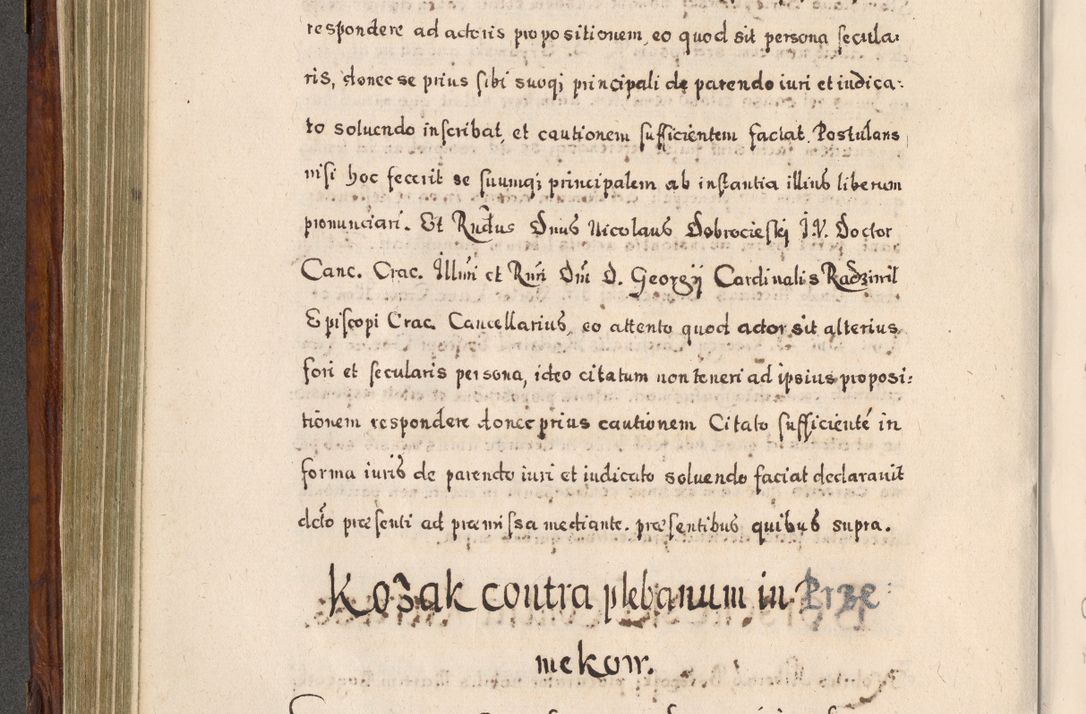 respondere ad actoris propositionem, eo quod sit persona secula:
ris, donec se prius sibi suoq; principali de parendo iuri et iudica:
to soluendo inscribat, et cautionem sufficientem faciat. Postulans
nisi hoc fecerit se suumq; principalem ab instantia illius liberum
pronunciari. Et Rndus Dnus Nicolaus Dobrocieski J.V. Doctor
Canc. Crac. Illmi et Rmi Dni D. Georgij Cardinalis Radziwil
Episcopi Crac. Cancellarius, eo attento quod actor sit alterius
fori et secularis persona, ideo citatum non teneri ad ipsius proposi:
tionem respondere donec prius cautionem Citato sufficienté in
forma iuris de parendo iuri et iudicato soluendo faciat declarauit
dcto præsenti ad præmissa mediante. præsentibus quibus supra.
Kozak contra plebanum in Prze
mekow.